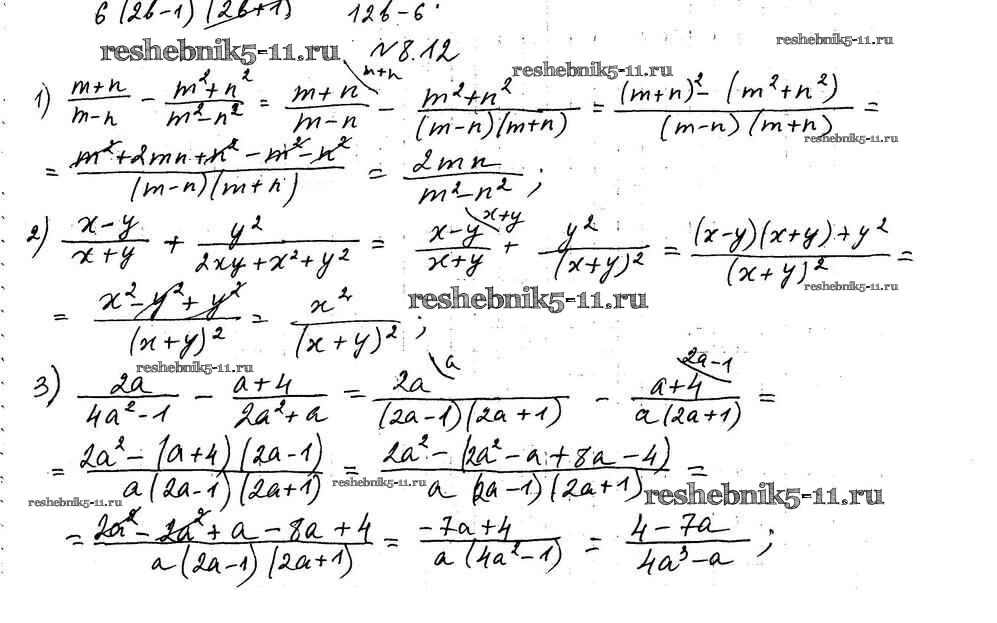 6(2b-1)(2b+1) 12b-6.
reshebnik5-11.ru №8.12 reshebnik5-11.ru reshebnik5-11.ru
1) (m+n)/(m-n) - (m²+n²)/(m²-n²) = (m+n)/(m-n) \m+n - (m²+n²)/((m-n)(m+n)) = ((m+n)² - (m²+n²))/((m-n)(m+n)) =
reshebnik5-11.ru
= (m²+2mn+n²-m²-n²)/((m-n)(m+n)) = 2mn/(m²-n²);
2) (x-y)/(x+y) + y²/(2xy+x²+y²) = (x-y)/(x+y) \x+y + y²/(x+y)² = ((x-y)(x+y)+y²)/(x+y)² =
reshebnik5-11.ru reshebnik5-11.ru
= (x²-y²+y²)/(x+y)² = x²/(x+y)²;
reshebnik5-11.ru
3) 2a/(4a²-1) - (a+4)/(2a²+a) = 2a/((2a-1)(2a+1)) \a - (a+4)/(a(2a+1)) \2a-1 =
= (2a²-(a+4)(2a-1))/(a(2a-1)(2a+1)) = (2a²-(2a²-a+8a-4))/(a(2a-1)(2a+1)) =
reshebnik5-11.ru reshebnik5-11.ru reshebnik5-11.ru
= (2a²-2a²+a-8a+4)/(a(2a-1)(2a+1)) = (-7a+4)/(a(4a²-1)) = (4-7a)/(4a³-a);